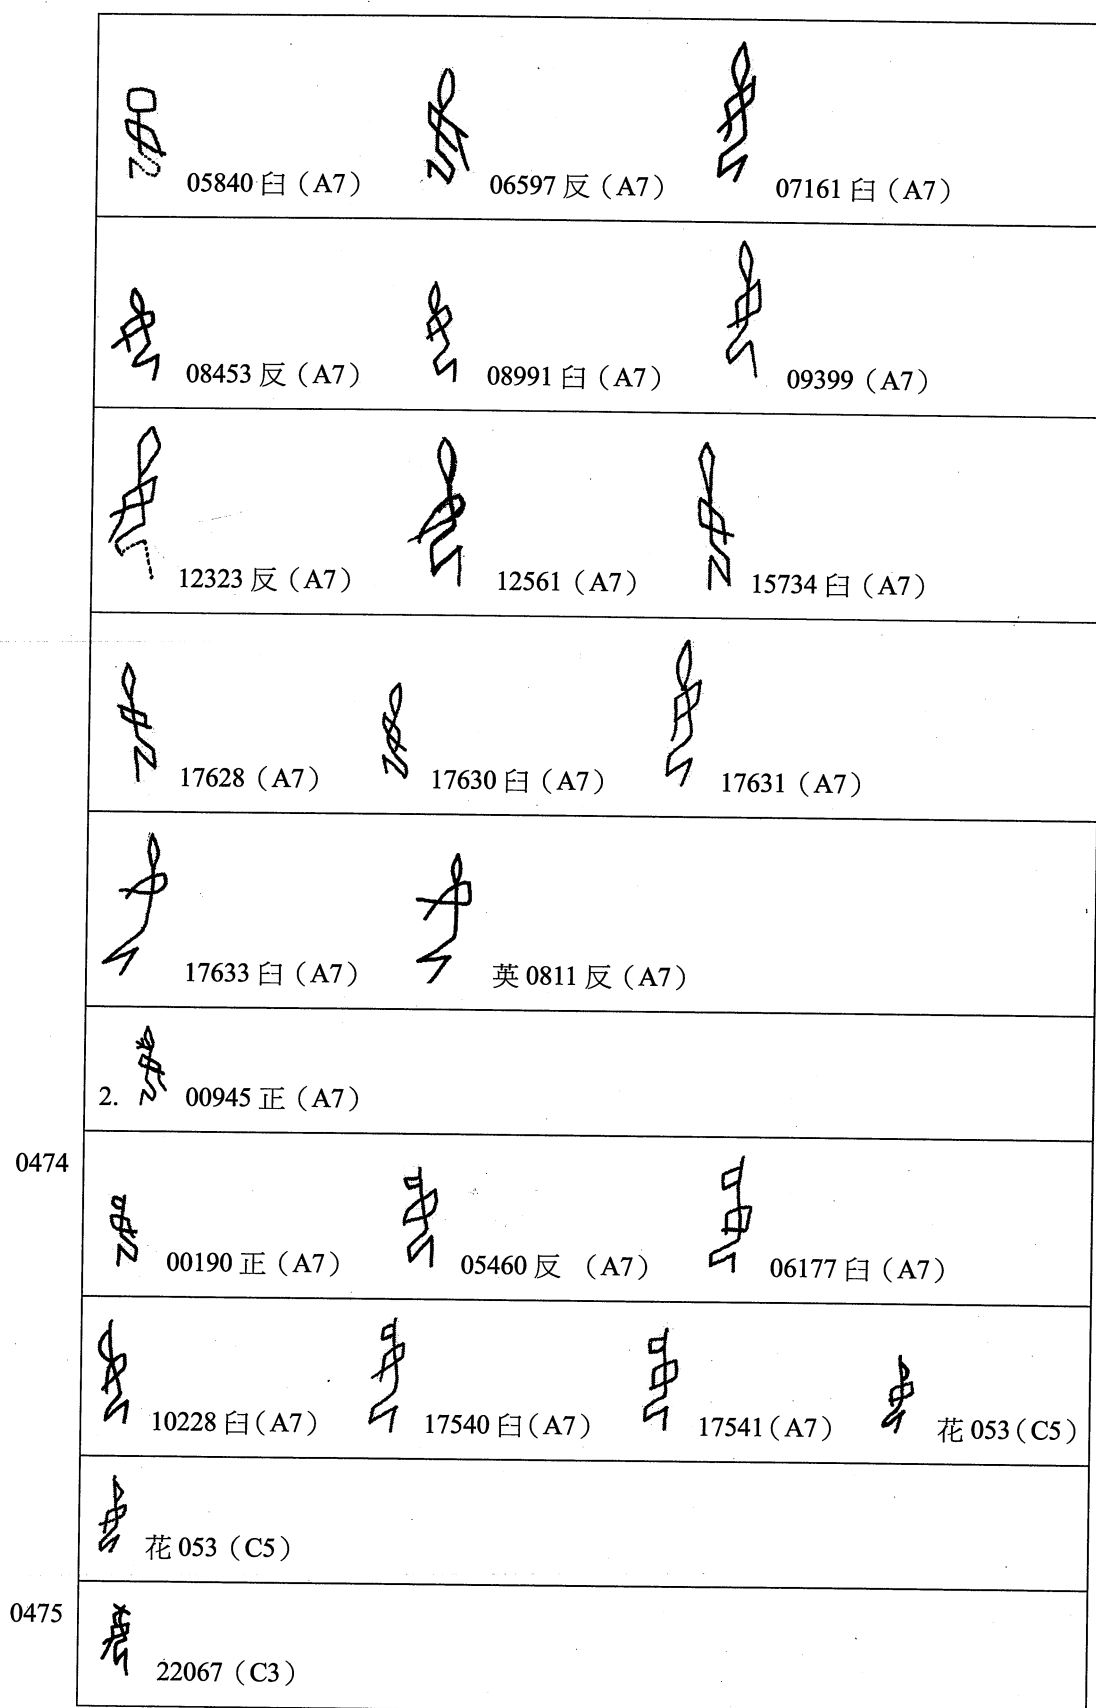 05840 臼（A7） 06597 反（A7） 07161 臼（A7）
08453 反（A7） 08991 臼（A7） 09399（A7）
12323 反（A7） 12561（A7） 15734 臼（A7）
17628（A7） 17630 臼（A7） 17631（A7）
17633 臼（A7） 英 0811 反（A7）
2. 00945 正（A7）
0474 00190 正（A7） 05460 反 （A7） 06177 臼（A7）
10228 臼（A7） 17540 臼（A7） 17541（A7） 花 053（C5）
花 053（C5）
0475 22067（C3）